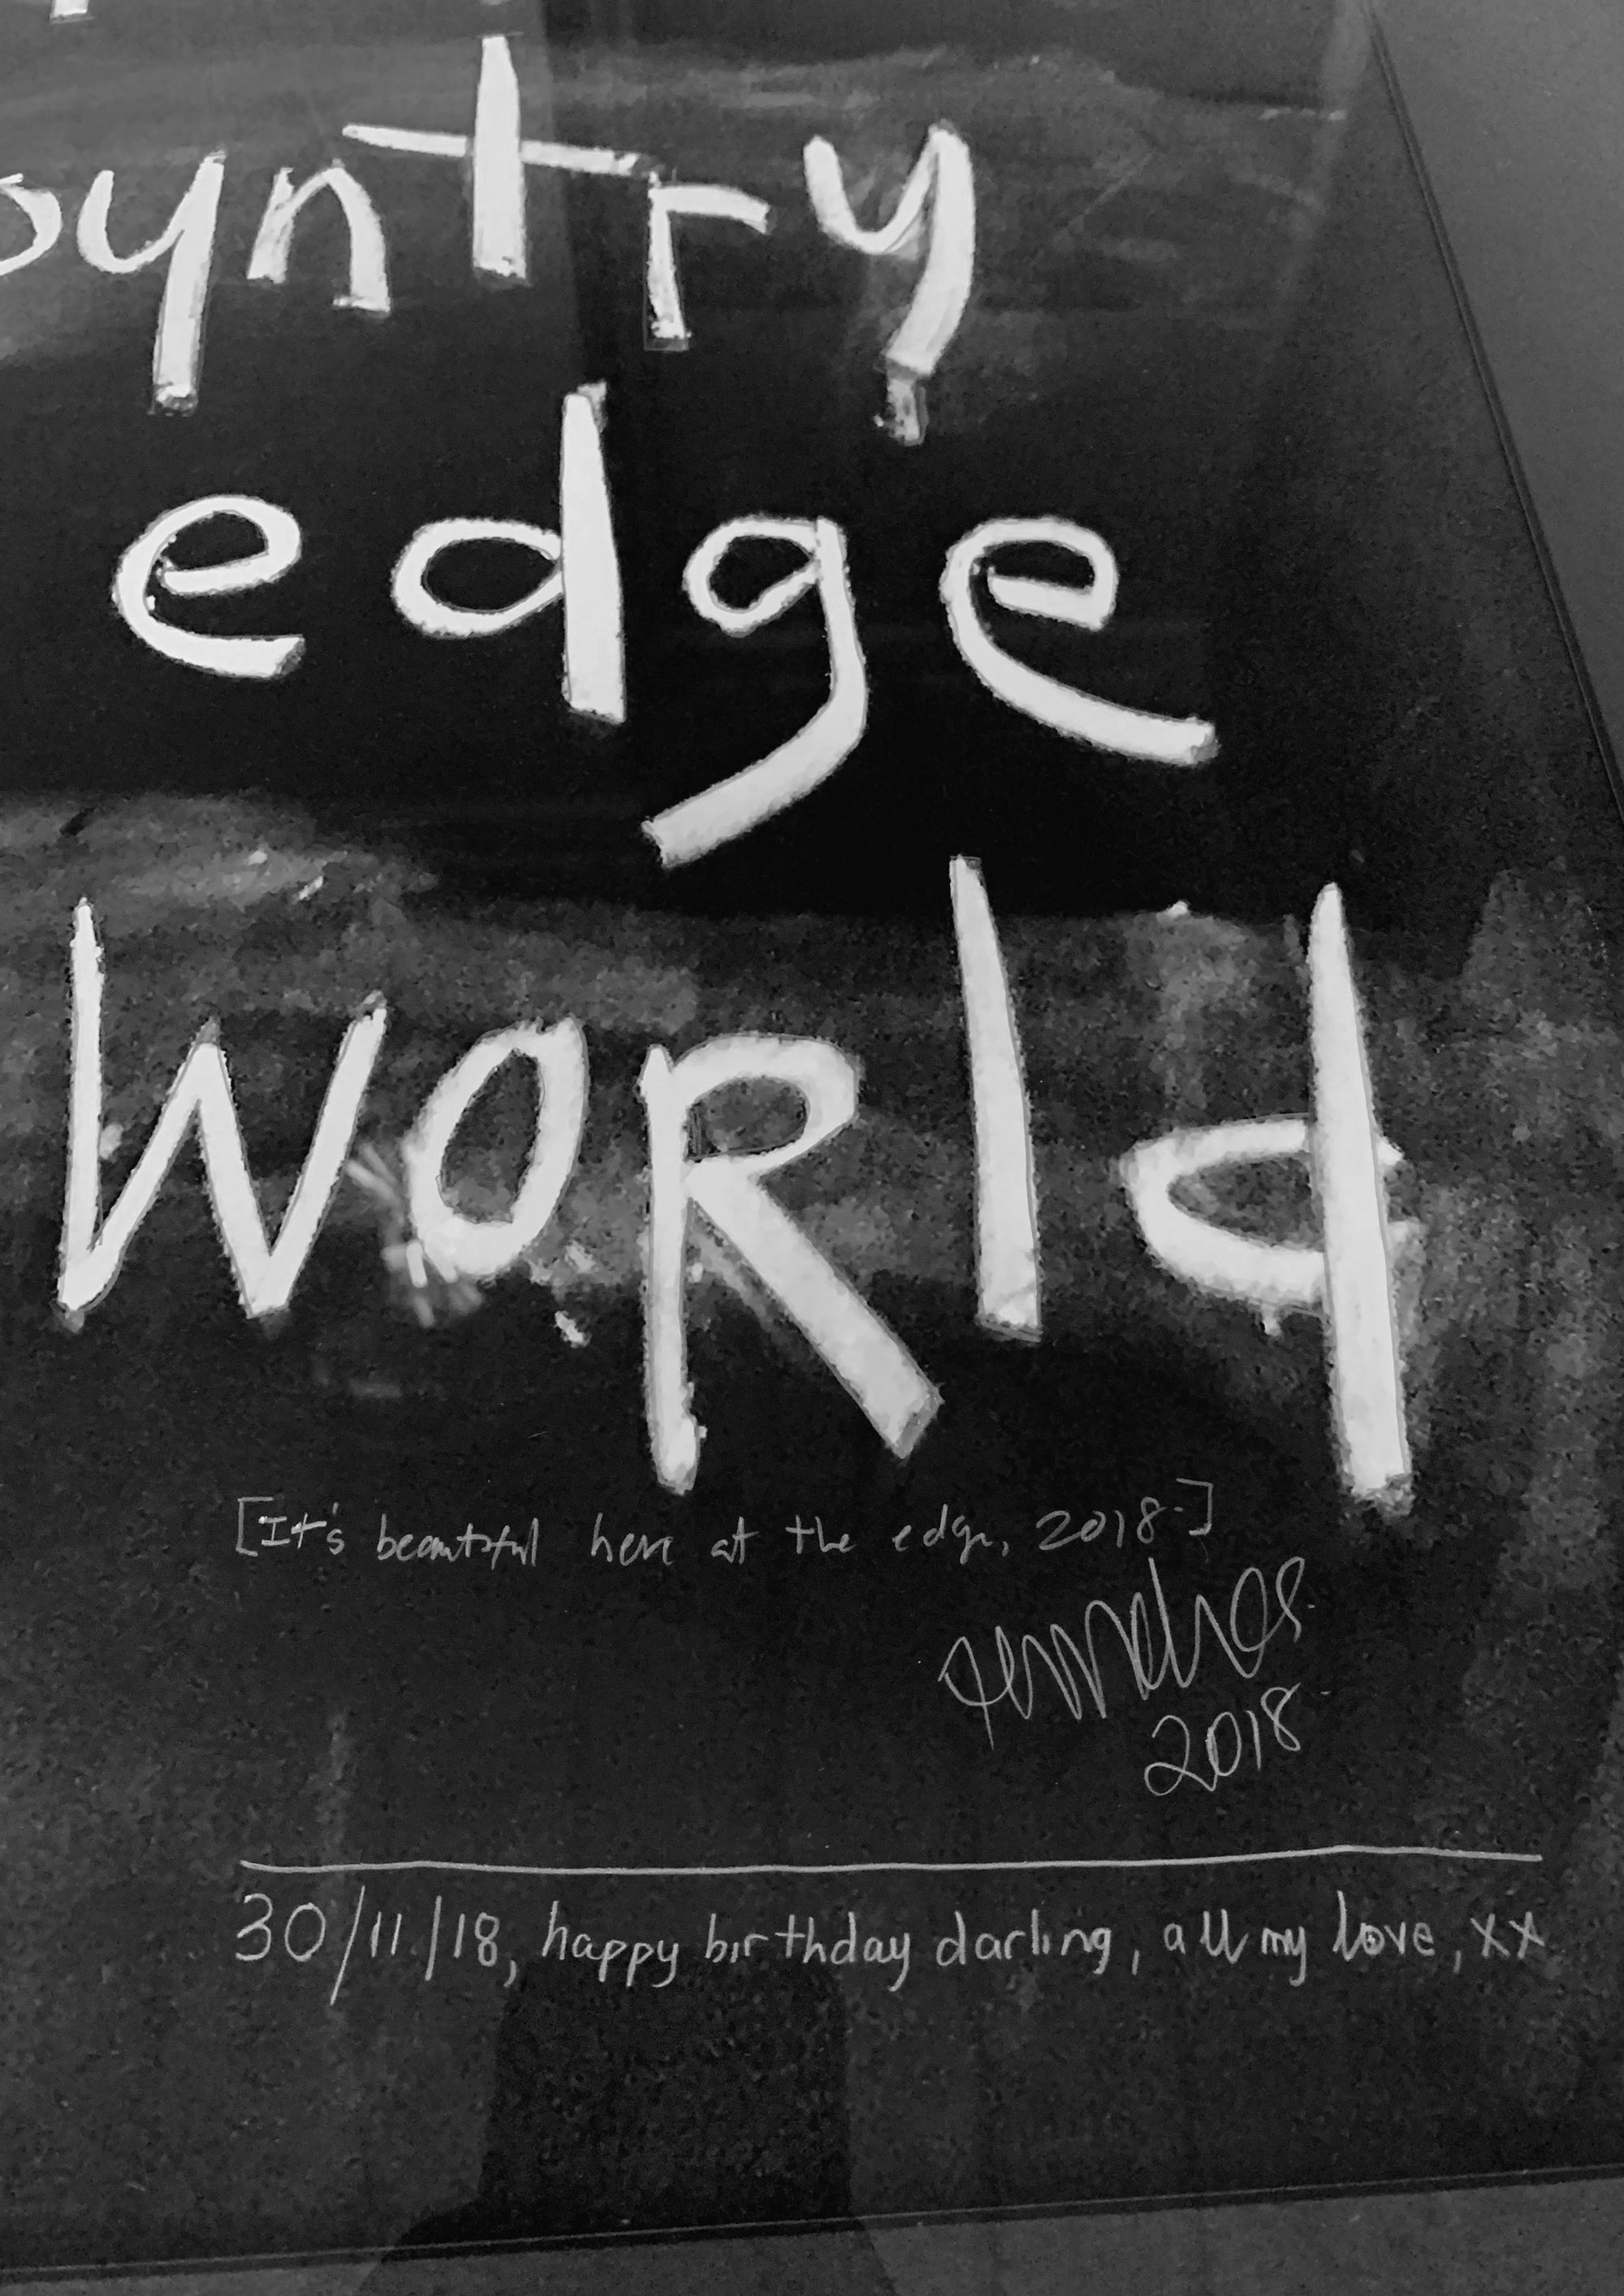 ountry
edge
WORld
[It's beautiful here at the edge, 2018-]
2018
30/11/18, happy birthday darling, all my love, xx